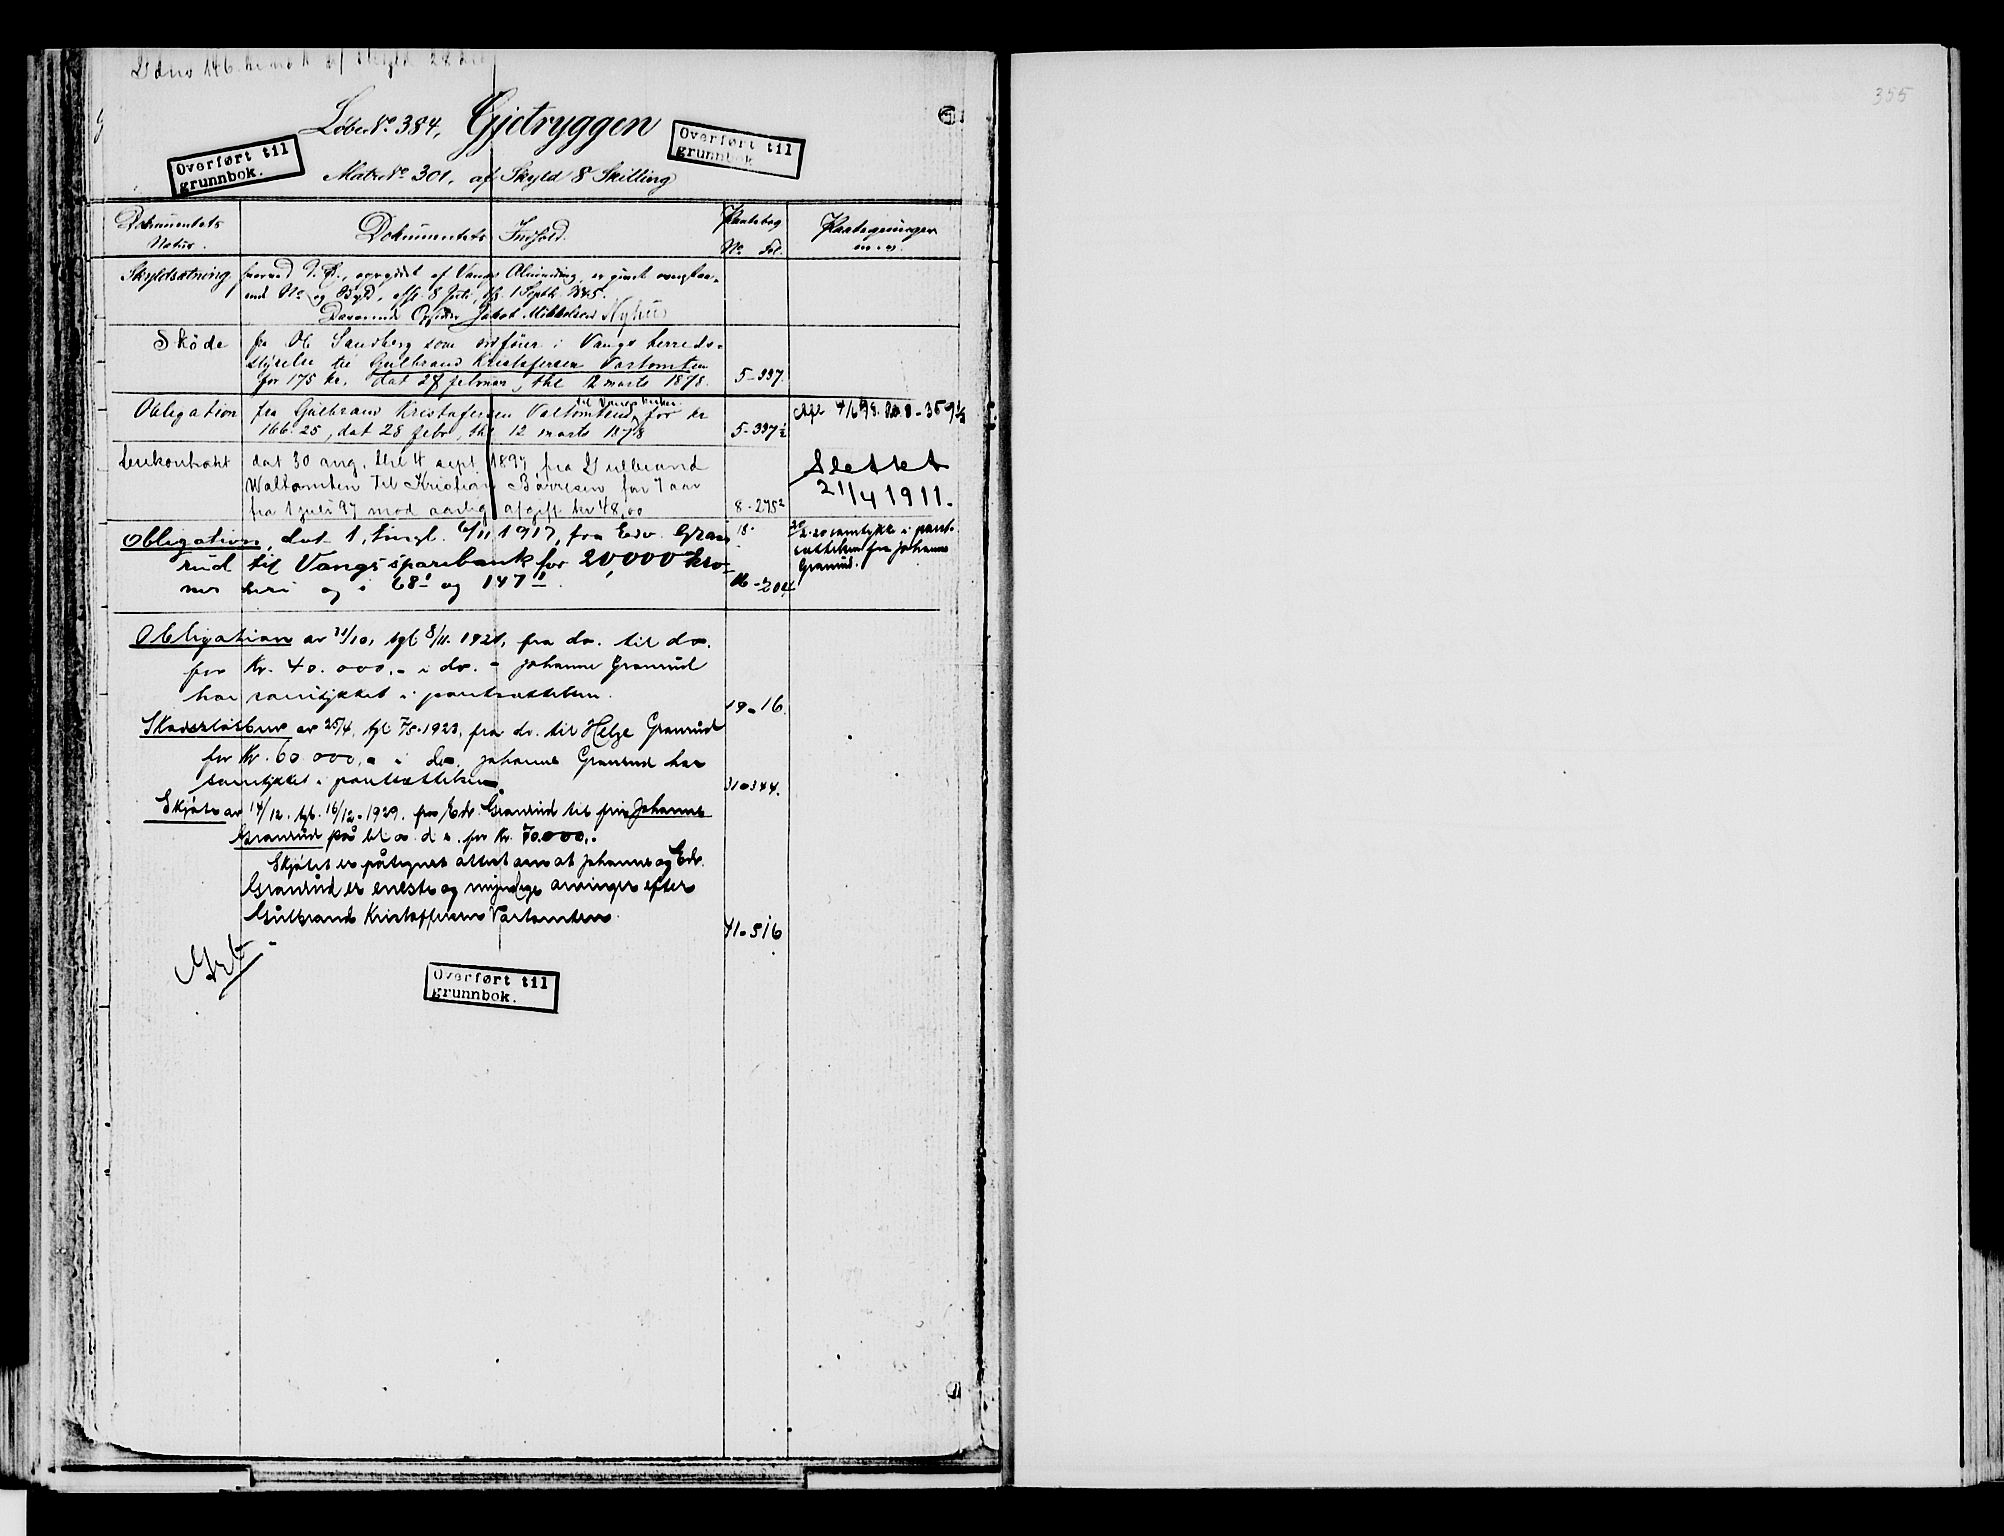 355
Løbe Nº 384, Gjetryggen
Overført til
grunnbok.
Overført til
grunnbok
Matr Nº 301, af Skyld 8 Skilling
Dokumentets
Natur.
Dokumentets Indhold.
Pantebog
Nº Fol.
Paategninger
m.v.
Skyldsætning, hvorved, af Vangs Alminding, er givet
Nº og Skyld, 8 Juli, 1 Septb.
Daværende Jakob Mikkelsen
Sköde fra Ol. Sandberg som ordförer i Vangs herreds-
styrelse til Gulbrand Kristofersen Vartomten
for 175 kr. dat 28 februar, thl 12 marts 1878. 5-337.
Obligation fra Gulbrand Kristofersen til Vangs for kr
166. 25, dat 28 febr, thl 12 marts 1878 5-337½
Afl
dat 30 aug. thl 4 sept. 1897 fra Gulbrand
til Kristian Börresen for 7 aar
fra 1 juli 97 mod aarlig afgift kr 48,00 8-275²
Slettet
21/4 1911.
Obligation, dat 1, tingl. 6/11 1917, fra Edv. Gran-
rud til Vangs sparebank for 20,000 kro-
ner heri og i 68¹ og 147¹. 16-204
samtykke i pant-
sættelsen fra Johanne
Granrud.
Obligation av 31/10, tgl 8/11. 1921, fra do. til do.
for Kr. 40.000,- i do. - Johanne Granrud
har samtykket i pantsættelsen. 19-16.
Skadesløsbrev av 25/4, tgl 7/5-1923, fra do. til Helge Granrud
for Kr. 60 000,- i do. Johanne Granrud har
samtykket i pantsættelsen. 31-344.
Skjøte av 14/12. tgl. 16/12-1929. fra Edv. Granrud til fru Johanne
Granrud på bl. a. d. e. for Kr. 70.000,-
Skjøtet er påtegnet attest om at Johanne og Edv.
Granrud er eneste og myndige arvinger efter
Gulbrand Kristoffersen Vartomten. 41-516
Overført til
grunnbok.